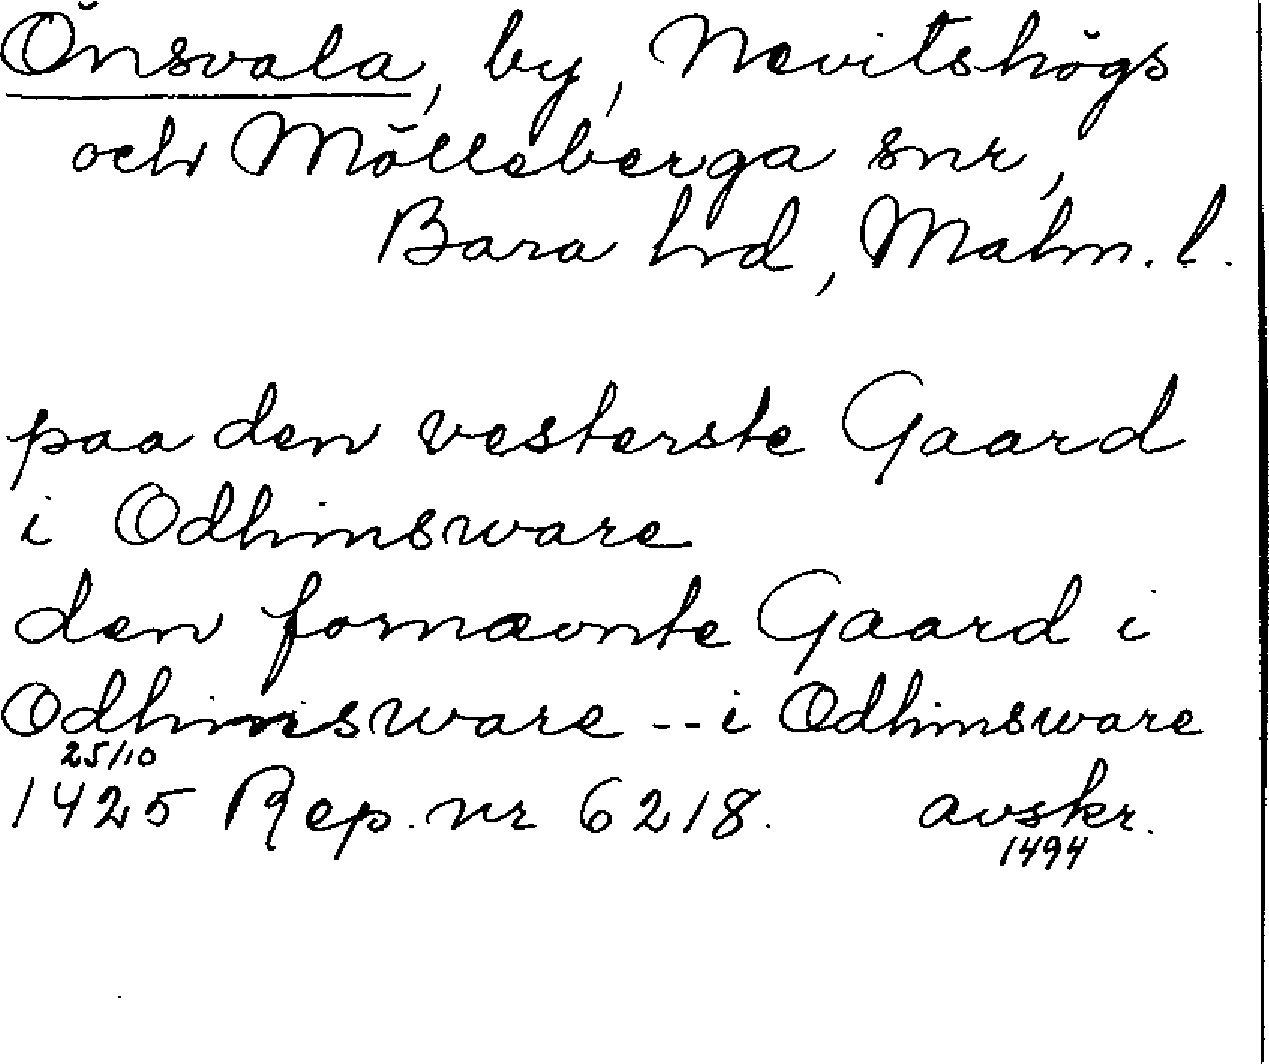 Önsvala, by, Nevitshögs
och Mölleberga snr,
Bara hrd, Malm. l.
paa den vesterste Gaard
i Odhinsware
den fornævnte Gaard i
Odhinsware -- i Odhinsware
25/10
1425 Rep. nr 6218. avskr.
1494